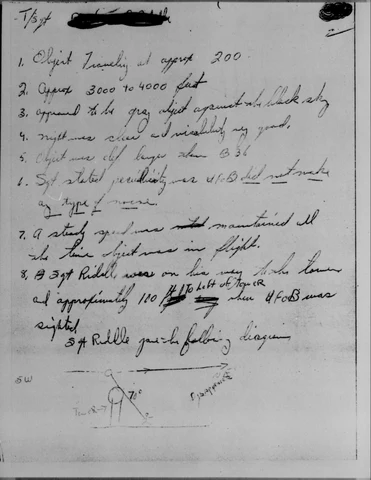 T/Sgt
1. Object Traveling at approx 200
2. Approx 3000 to 4000 feet
3. appeared to be gray object against the black sky
4. night was clear and visibility very good.
5. Object was def larger than B 36
6. Sgt stated peculiarity was UFoB did not make
any type of noise.
7. A steady speed was maintained all
the time object was in flight.
8. Sgt Riddle was on his way to the tower
and approximately 100 ft to left of tower when UFoB was
sighted
Sgt Riddle gave the following diagram
SW
70°